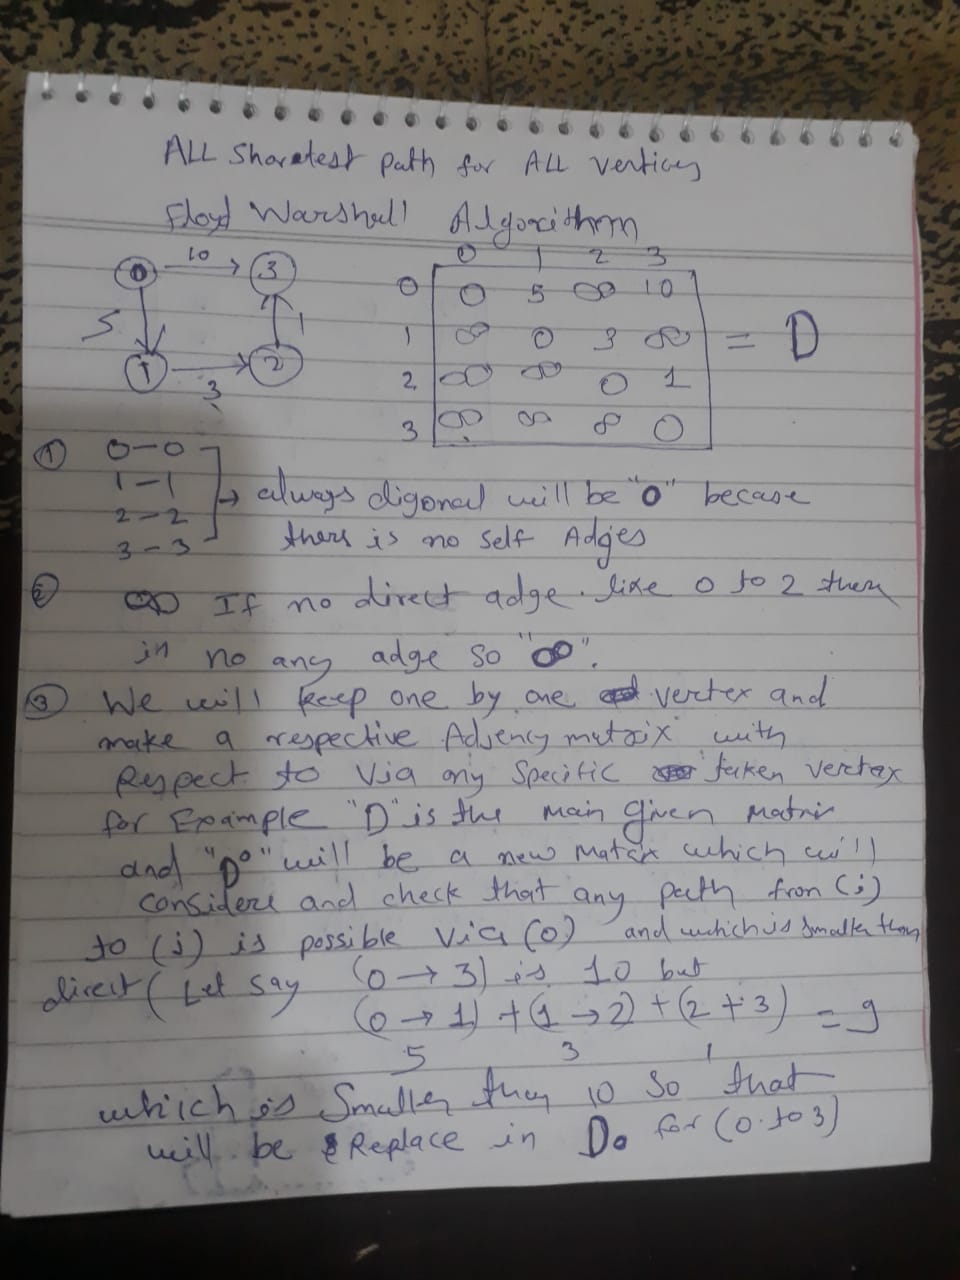 ALL Shoretest path for ALL Vertices
Floyd Warshall Algorithm
0 10 3
5 1
1 3 2
0 1 2 3
0 0 5 ∞ 10
1 ∞ 0 3 ∞ = D
2 ∞ ∞ 0 1
3 ∞ ∞ ∞ 0
① 0-0
1-1
2-2
3-3
→ always digonal will be "0" becase
there is no self Adges
② ∞ If no direct adge. like 0 to 2 there
in no any adge so "∞".
③ We will keep one by one vertex and
make a respective Adjency matrix with
Respect to Via any Specific taken vertex
for Example "D" is the main given matrix
and "D⁰" will be a new matrix which will
considere and check that any path from (i)
to (j) is possible Via (0) and which is smaller than
direct ( Let say (0 → 3) is 10 but
(0 → 1) + (1 → 2) + (2 + 3) = 9
5 3 1
which is Smaller than 10 So that
will be Replace in D₀ for (0 to 3)